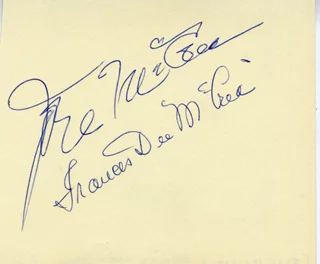 Joel McCrea
Frances Dee McCrea